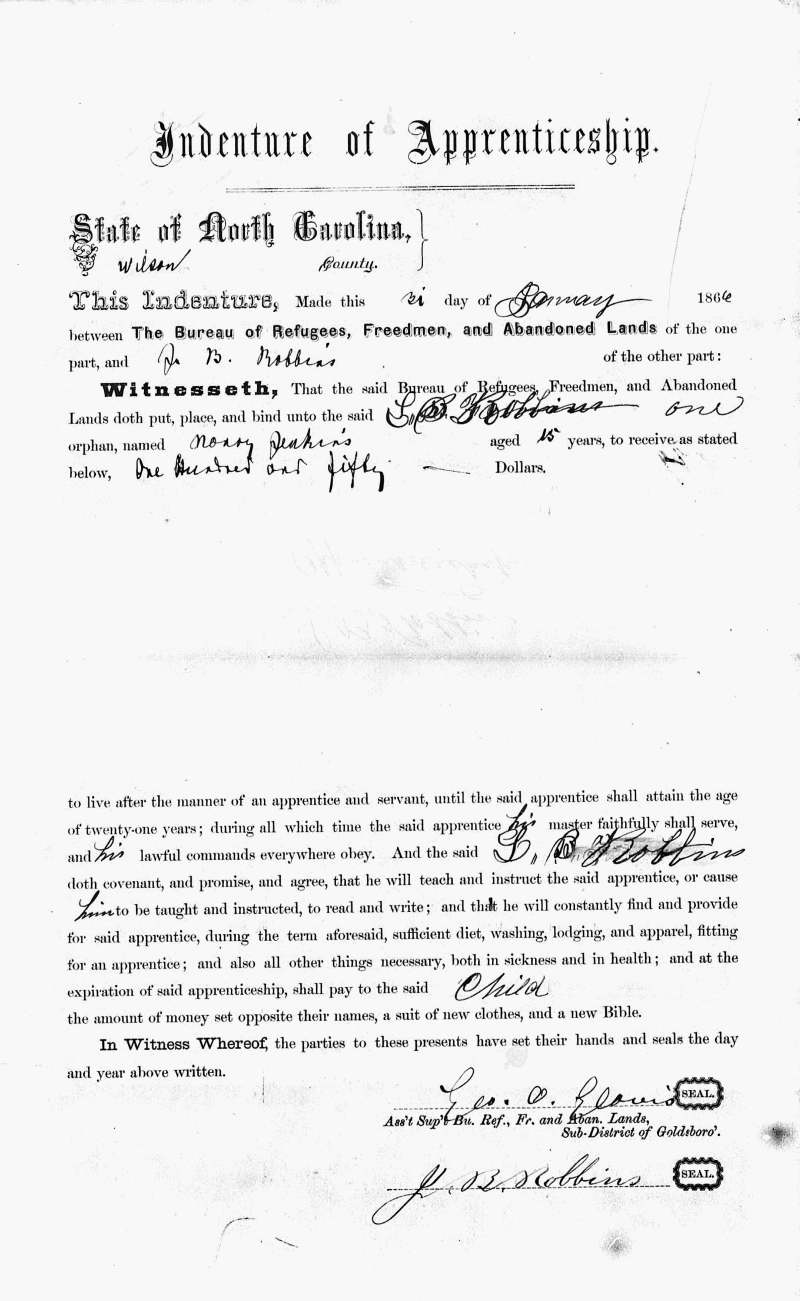 Indenture of Apprenticeship.
State of North Carolina,
Wilson County.
This Indenture, Made this day of January 1866
between The Bureau of Refugees, Freedmen, and Abandoned Lands of the one
part, and J. B. Robbins of the other part:
Witnesseth, That the said Bureau of Refugees, Freedmen, and Abandoned
Lands doth put, place, and bind unto the said B. Robbins one
orphan, named Jenkins aged 15 years, to receive as stated
below, One Hundred and fifty Dollars.
to live after the manner of an apprentice and servant, until the said apprentice shall attain the age
of twenty-one years; during all which time the said apprentice his master faithfully shall serve,
and his lawful commands everywhere obey. And the said B Robbins
doth covenant, and promise, and agree, that he will teach and instruct the said apprentice, or cause
him to be taught and instructed, to read and write; and that he will constantly find and provide
for said apprentice, during the term aforesaid, sufficient diet, washing, lodging, and apparel, fitting
for an apprentice; and also all other things necessary, both in sickness and in health; and at the
expiration of said apprenticeship, shall pay to the said Child
the amount of money set opposite their names, a suit of new clothes, and a new Bible.
In Witness Whereof, the parties to these presents have set their hands and seals the day
and year above written.
Geo. O. SEAL.
Ass't Sup't Bu. Ref., Fr. and Aban. Lands,
Sub-District of Goldsboro'.
J. B. Robbins SEAL.